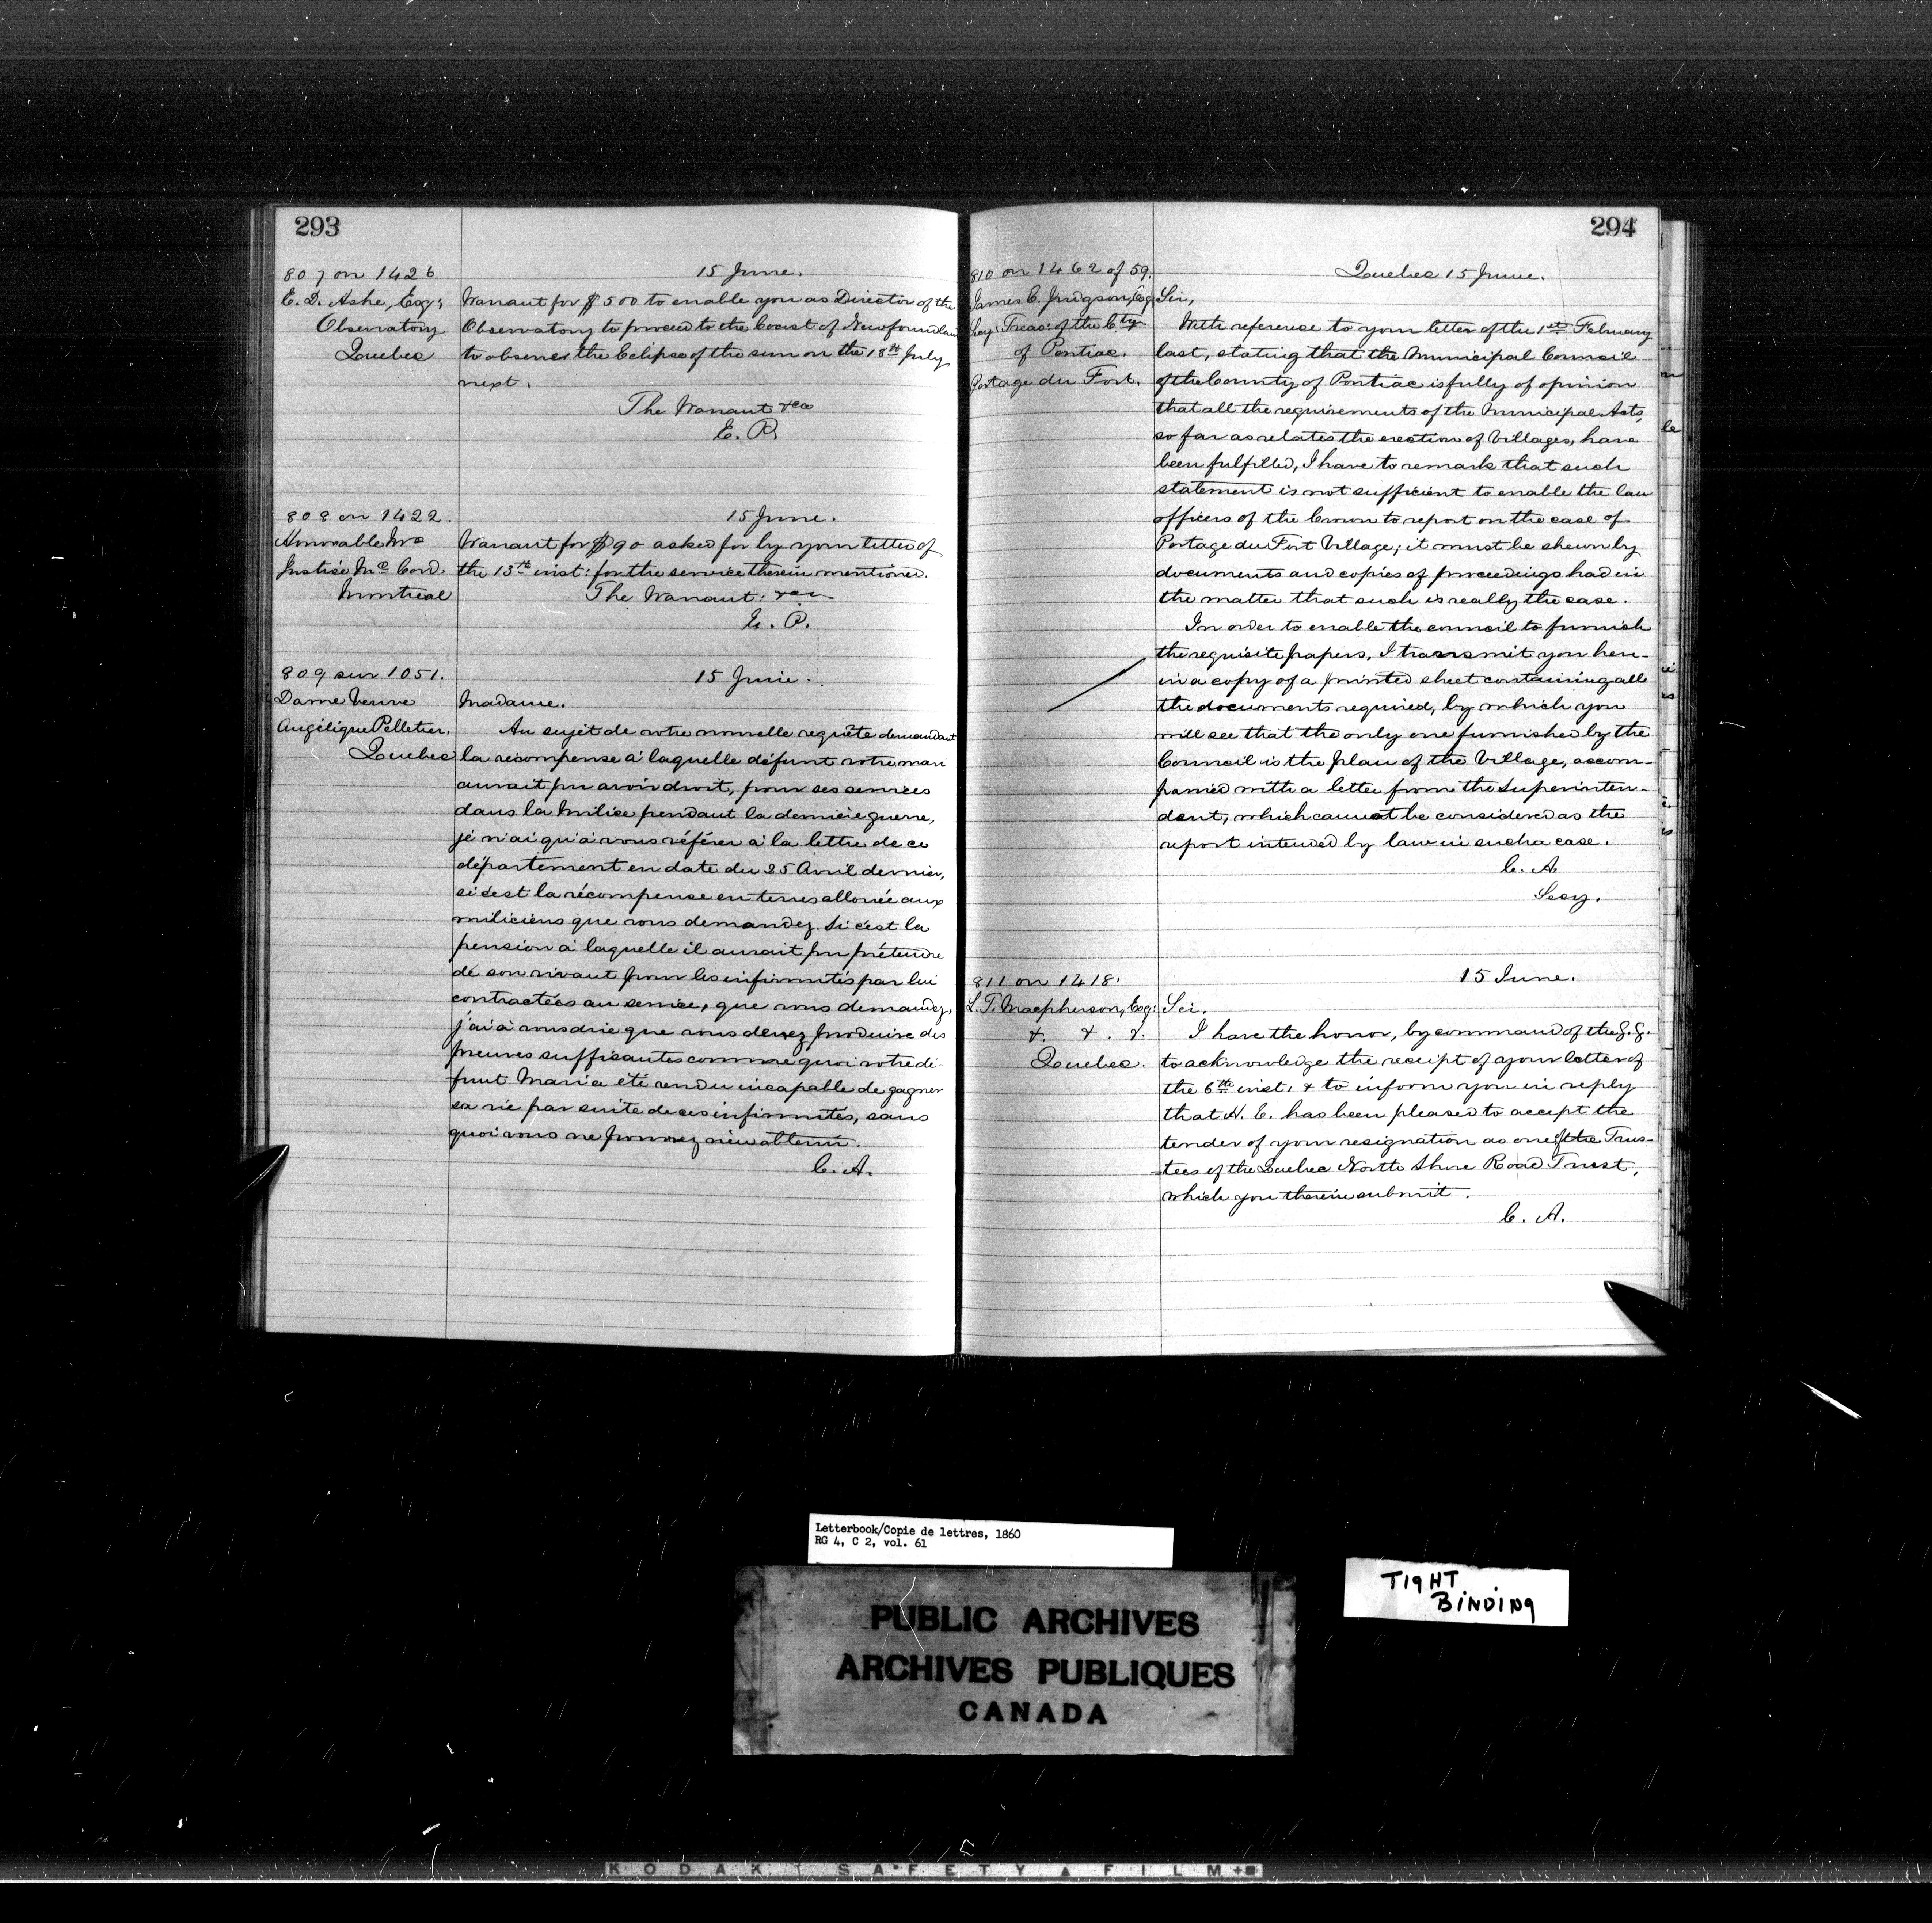 293
807 on 1426
15 June.
E. D. Ashe, Esq:
Observatory
Quebec
Warrant for $500 to enable you as Director of the
Observatory to proceed to the Coast of Newfoundland
to observe the Eclipse of the sun on the 18th July
next.
The Warrant &ca
E. P.
808 on 1422.
15 June.
Honorable Mr
Justice Mc Cord.
Montreal
Warrant for $90 asked for by your letter of
the 13th inst: for the service therein mentioned.
The Warrant: &ca
E. P.
809 sur 1051.
15 Juin.
Dame Veuve
Angélique Pelletier.
Quebec
Madame.
Au sujet de votre nouvelle requête demandant
la récompense à laquelle défunt votre mari
aurait pu avoir droit, pour ses services
dans la Milice pendant la dernière guerre,
je n'ai qu'à vous référer à la lettre de ce
département en date du 25 Avril dernier,
si c'est la récompense en terres allouée aux
miliciens que vous demandez. Si c'est la
pension à laquelle il aurait pu prétendre
de son vivant pour les infirmités par lui
contractées au service, que vous demandez,
j'ai à vous dire que vous devez produire des
preuves suffisantes comme quoi votre dé-
funt Mari a été rendu incapable de gagner
sa vie par suite de ces infirmités, sans
quoi vous ne pourrez rien obtenir.
C. A.
294
810 on 1462 of 59.
Quebec 15 June.
James C. Judgson, Esq
Secy: Treas: of the Cty
of Pontiac.
Portage du Fort.
Sir,
With reference to your letter of the 1st February
last, stating that the Municipal Council
of the County of Pontiac is fully of opinion
that all the requirements of the Municipal Acts,
so far as relates the erection of Villages, have
been fulfilled, I have to remark that such
statement is not sufficient to enable the law
officers of the Crown to report on the case of
Portage du Fort Village; it must be shewn by
documents and copies of proceedings had in
the matter that such is really the case.
In order to enable the council to furnish
the requisite papers, I transmit you here-
in a copy of a printed sheet containing all
the documents required, by which you
will see that the only one furnished by the
Council is the plan of the Village, accom-
panied with a letter from the Superinten-
dent, which cannot be considered as the
report intended by law in such a case.
C. A.
Secy.
811 on 1418.
15 June.
L. T. Macpherson, Esq:
&. &. &.
Quebec.
Sir.
I have the honor, by command of the G. G.
to acknowledge the receipt of your letter of
the 6th inst: & to inform you in reply
that H. E. has been pleased to accept the
tender of your resignation as one of the Trus-
-tees of the Quebec North Shore Road Trust,
which you therein submit.
C. A.
Letterbook/Copie de lettres, 1860
RG 4, C 2, vol. 61
TIGHT
BINDING
PUBLIC ARCHIVES
ARCHIVES PUBLIQUES
CANADA
KODAK SAFETY FILM